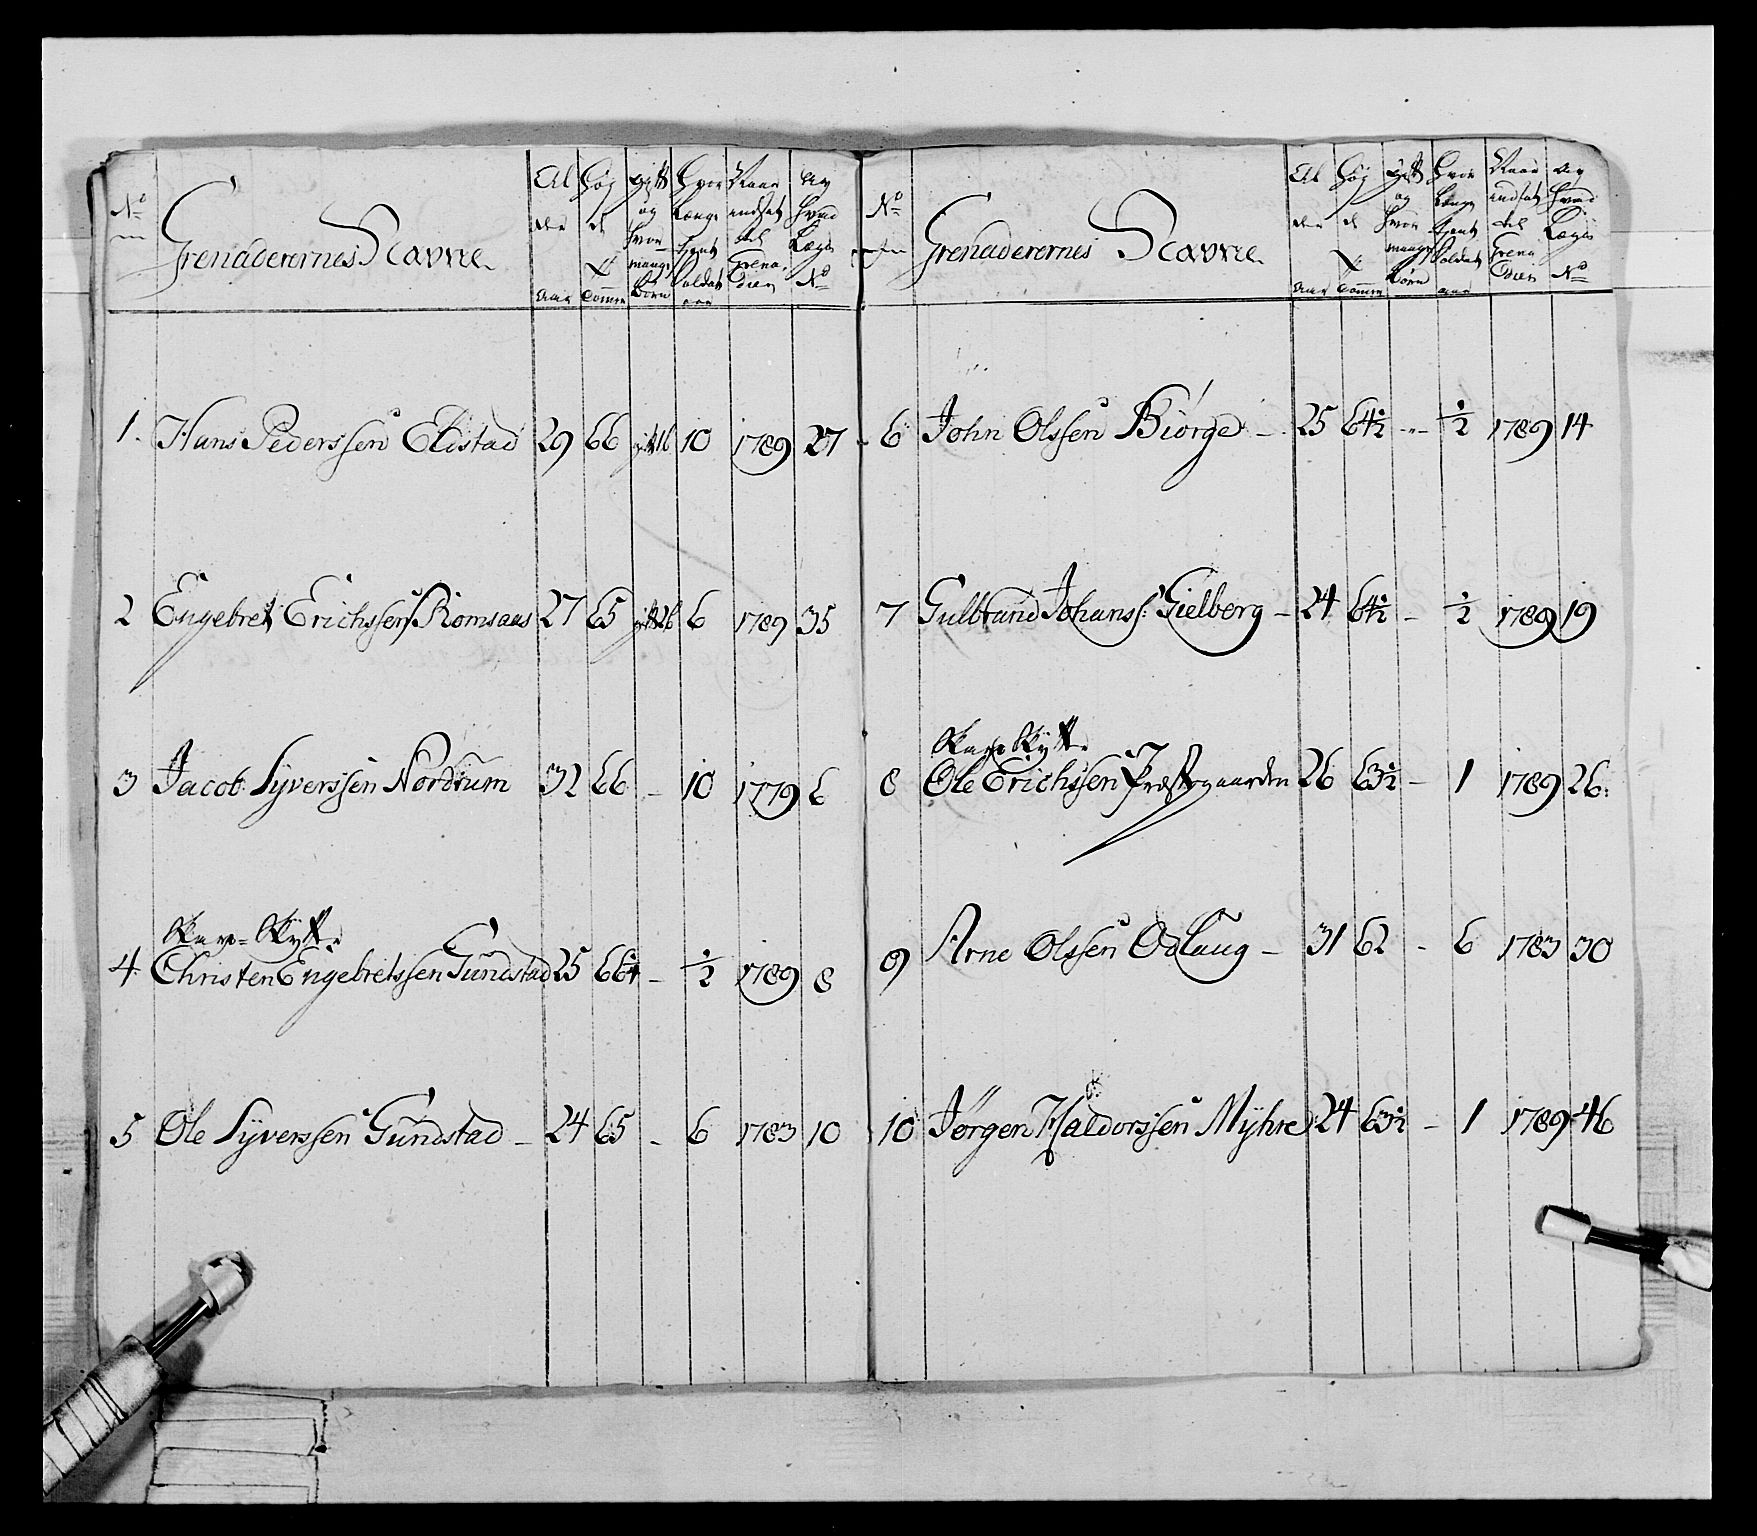 No
Grenaderernes Navne
Al der Aar
Høg de Tommer
gift og hvor mange Børn
Hvor Længe tjent Soldat aar
Naar indsat ved Grena dien
Av hvad Lægd No
1. Hans Pederssen Elistad 29 66 gift 1 b 10 1789 27
2 Engebret Erichssen Romsaas 27 65 gift 2 b 6 1789 35
3 Jacob Syverssen Nordrum 32 66 - 10 1779 6
Skarp-Skytt.
4. Christen Engebretssen Gundstad 25 66¼ - ½ 1789 8
5 Ole Syverssen Gundstad - 24 65 - 6 1783 10
No
Grenaderernes Navne
Al der Aar
Høg de Tommer
gift og hvor mange Børn
Hvor Længe tjent Soldat aar
Naar indsat ved Grena dien
Av hvad Lægd No
6 John Olssen Biørge - 25 64½ - ½ 1789 14
7 Gulbrand Johanss: Gielberg - 24 64½ - ½ 1789 19
Skarp Skytt.
8 Ole Erichssen Præstegaarden 26 63½ - 1 1789 26.
9 Arne Olssen Odlaug - 31 62 - 6 1783 30
10 Jørgen Haldorssen Myhre 24 63½ - 1 1789 46